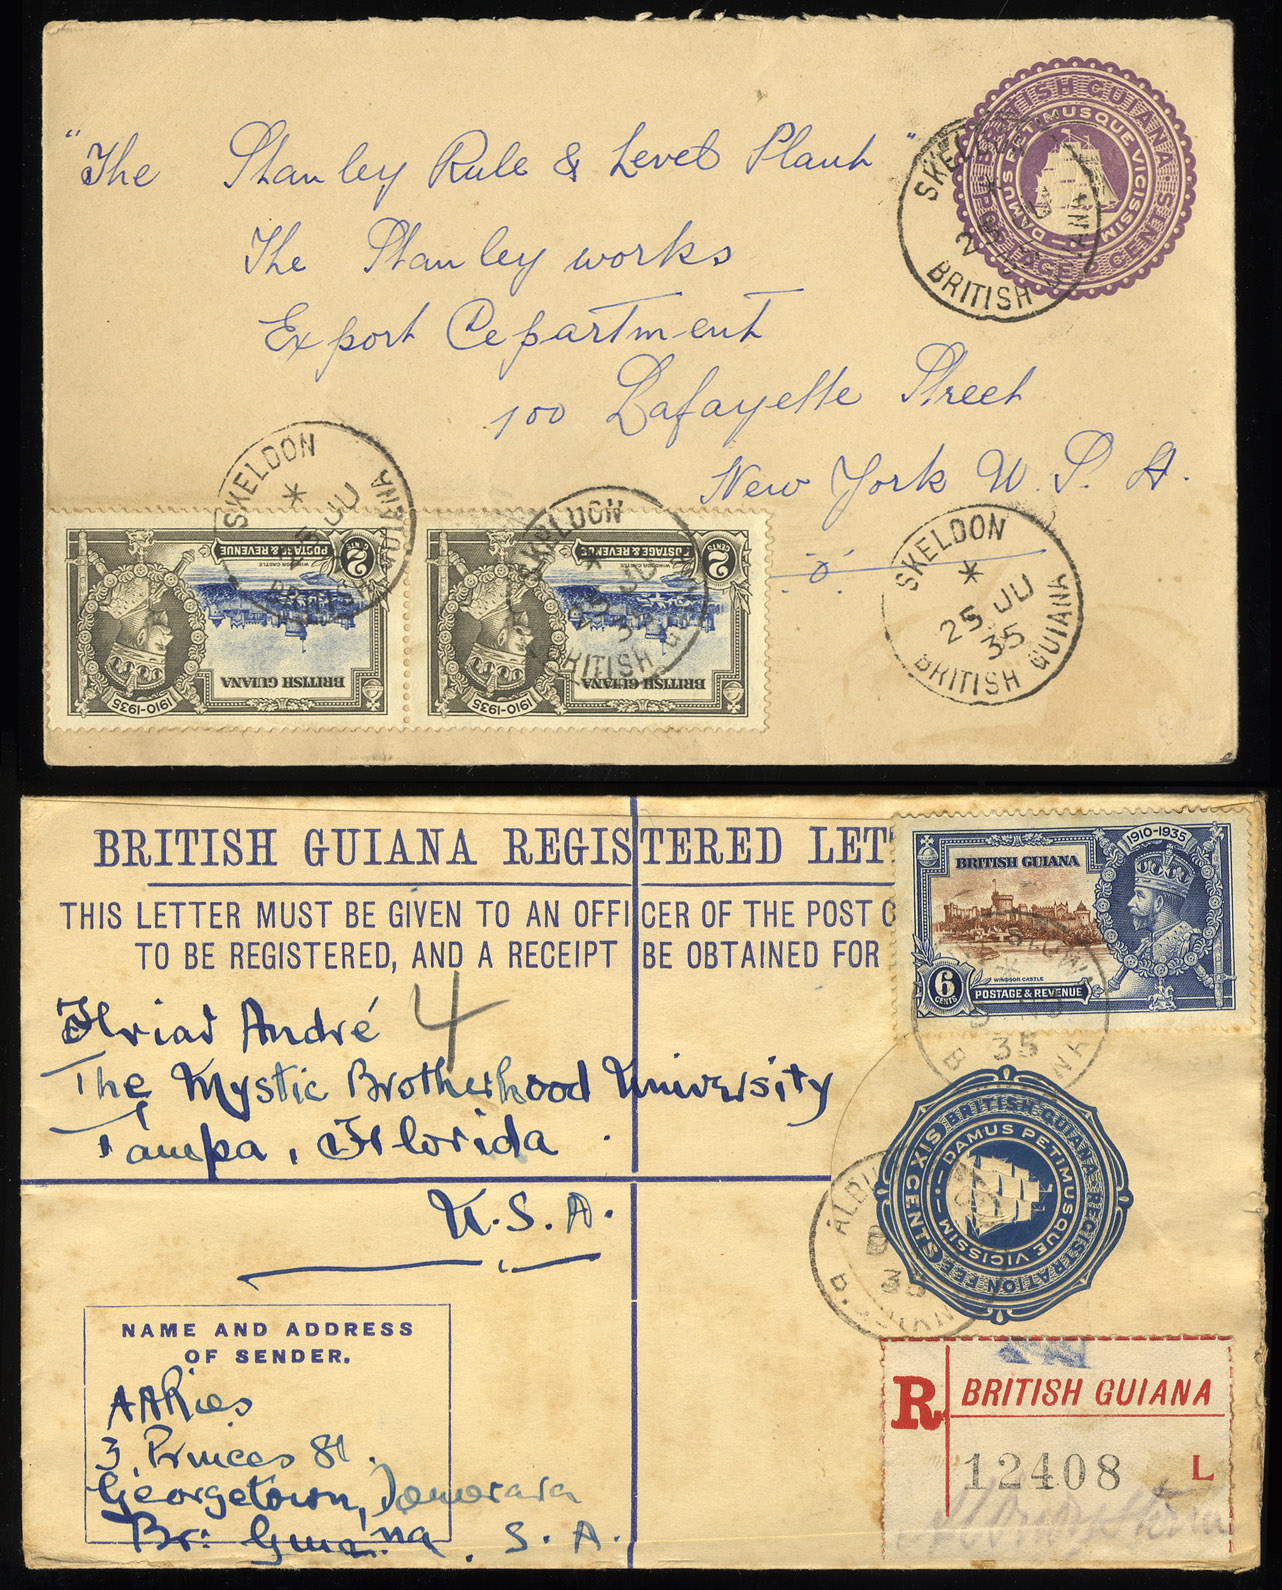 "The Stanley Rule & Level Plant"
The Stanley works
Export Department
100 Lafayette Street
New York U. S. A.
BRITISH GUIANA
DAMUS PETIMUSQUE VICISSIM
SKELDON
BRITISH
SKELDON
25 JU
35
BRITISH GUIANA
SKELDON
JU
GUIANA
SKELDON
25 JU
35
BRITISH
2 CENTS
POSTAGE & REVENUE
WINDSOR CASTLE
BRITISH GUIANA
1910-1935
2 CENTS
POSTAGE & REVENUE
WINDSOR CASTLE
BRITISH GUIANA
1910-1935
BRITISH GUIANA REGISTERED LET
THIS LETTER MUST BE GIVEN TO AN OFFICER OF THE POST
TO BE REGISTERED, AND A RECEIPT BE OBTAINED FOR
1910-1935
BRITISH GUIANA
WINDSOR CASTLE
6 CENTS
POSTAGE & REVENUE
35
4
André
The Mystic Brotherhood University
Tampa, Florida.
U.S.A.
BRITISH GUIANA REGISTRATION FEE
SIX CENTS
DAMUS PETIMUSQUE VICISSIM
35
NAME AND ADDRESS
OF SENDER.
3 Princes St.
Georgetown, Demerara
Br: Guiana. S. A.
R BRITISH GUIANA
12408 L